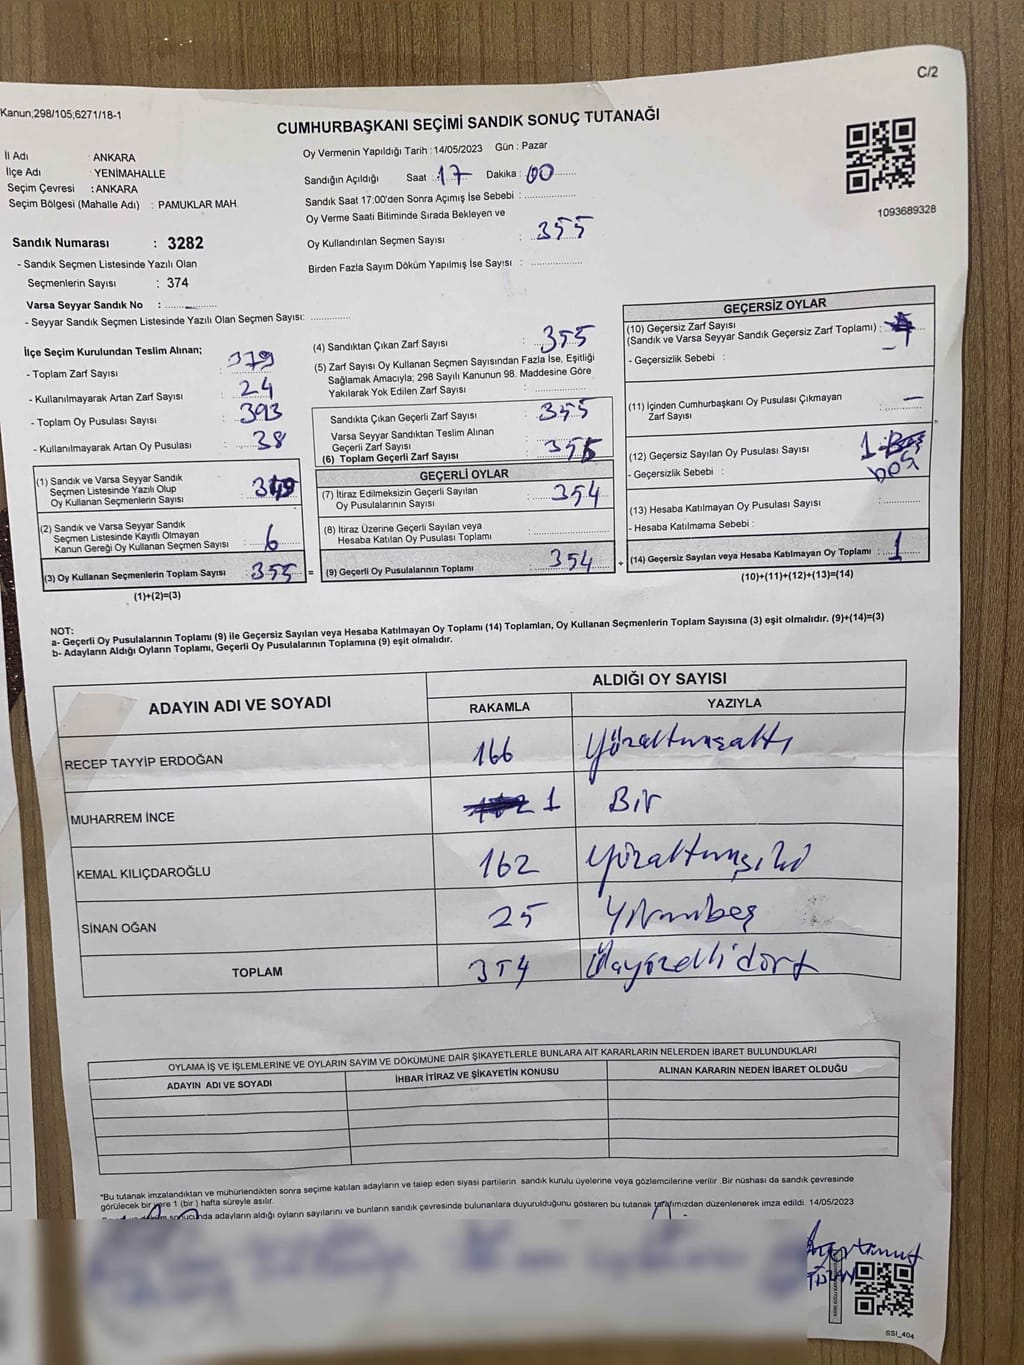 C/2
Kanun,298/105,6271/18-1
CUMHURBAŞKANI SEÇİMİ SANDIK SONUÇ TUTANAĞI
İl Adı : ANKARA
İlçe Adı : YENİMAHALLE
Seçim Çevresi : ANKARA
Seçim Bölgesi (Mahalle Adı) : PAMUKLAR MAH.
Sandık Numarası : 3282
- Sandık Seçmen Listesinde Yazılı Olan
Seçmenlerin Sayısı : 374
Varsa Seyyar Sandık No :
- Seyyar Sandık Seçmen Listesinde Yazılı Olan Seçmen Sayısı:
Oy Vermenin Yapıldığı Tarih : 14/05/2023 Gün : Pazar
Sandığın Açıldığı Saat : 17 Dakika : 00
Sandık Saat 17:00'den Sonra Açımış İse Sebebi :
Oy Verme Saati Bitiminde Sırada Bekleyen ve
Oy Kullandırılan Seçmen Sayısı : 355
Birden Fazla Sayım Döküm Yapılmış İse Sayısı :
1093689328
İlçe Seçim Kurulundan Teslim Alınan;
- Toplam Zarf Sayısı : 379
- Kullanılmayarak Artan Zarf Sayısı : 24
- Toplam Oy Pusulası Sayısı : 393
- Kullanılmayarak Artan Oy Pusulası : 38
(1) Sandık ve Varsa Seyyar Sandık
Seçmen Listesinde Yazılı Olup
Oy Kullanan Seçmenlerin Sayısı : 349
(2) Sandık ve Varsa Seyyar Sandık
Seçmen Listesinde Kayıtlı Olmayan
Kanun Gereği Oy Kullanan Seçmen Sayısı : 6
(3) Oy Kullanan Seçmenlerin Toplam Sayısı : 355 =
(1)+(2)=(3)
(4) Sandıktan Çıkan Zarf Sayısı : 355
(5) Zarf Sayısı Oy Kullanan Seçmen Sayısından Fazla İse, Eşitliği
Sağlamak Amacıyla; 298 Sayılı Kanunun 98. Maddesine Göre
Yakılarak Yok Edilen Zarf Sayısı :
Sandıkta Çıkan Geçerli Zarf Sayısı : 355
Varsa Seyyar Sandıktan Teslim Alınan
Geçerli Zarf Sayısı :
(6) Toplam Geçerli Zarf Sayısı : 355
GEÇERLİ OYLAR
(7) İtiraz Edilmeksizin Geçerli Sayılan
Oy Pusulasının Sayısı : 354
(8) İtiraz Üzerine Geçerli Sayılan veya
Hesaba Katılan Oy Pusulası Toplamı :
(9) Geçerli Oy Pusulalarının Toplamı : 354 +
GEÇERSİZ OYLAR
(10) Geçersiz Zarf Sayısı
(Sandık ve Varsa Seyyar Sandık Geçersiz Zarf Toplamı) :
- Geçersizlik Sebebi :
(11) İçinden Cumhurbaşkanı Oy Pusulası Çıkmayan
Zarf Sayısı : –
(12) Geçersiz Sayılan Oy Pusulası Sayısı : 1
- Geçersizlik Sebebi : boş
(13) Hesaba Katılmayan Oy Pusulası Sayısı :
- Hesaba Katılmama Sebebi :
(14) Geçersiz Sayılan veya Hesaba Katılmayan Oy Toplamı : 1
(10)+(11)+(12)+(13)=(14)
NOT:
a- Geçerli Oy Pusulalarının Toplamı (9) ile Geçersiz Sayılan veya Hesaba Katılmayan Oy Toplamı (14) Toplamları, Oy Kullanan Seçmenlerin Toplam Sayısına (3) eşit olmalıdır. (9)+(14)=(3)
b- Adayların Aldığı Oyların Toplamı, Geçerli Oy Pusulalarının Toplamına (9) eşit olmalıdır.
ADAYIN ADI VE SOYADI
ALDIĞI OY SAYISI
RAKAMLA YAZIYLA
RECEP TAYYİP ERDOĞAN 166 Yüzaltmışaltı
MUHARREM İNCE 1 Bir
KEMAL KILIÇDAROĞLU 162 Yüzaltmışiki
SİNAN OĞAN 25 Yirmibeş
TOPLAM 354 Üçyüzellidört
OYLAMA İŞ VE İŞLEMLERİNE VE OYLARIN SAYIM VE DÖKÜMÜNE DAİR ŞİKAYETLERLE BUNLARA AİT KARARLARIN NELERDEN İBARET BULUNDUKLARI
ADAYIN ADI VE SOYADI İHBAR İTİRAZ VE ŞİKAYETİN KONUSU ALINAN KARARIN NEDEN İBARET OLDUĞU
*Bu tutanak imzalandıktan ve mühürlendikten sonra seçime katılan adayların ve talep eden siyasi partilerin sandık kurulu üyelerine veya gözlemcilerine verilir .Bir nüshası da sandık çevresinde
görülecek bir yere 1 (bir ) hafta süreyle asılır.
adayların aldığı oyların sayılarını ve bunların sandık çevresinde bulunanlara duyurulduğunu gösteren bu tutanak tarafımızdan düzenlenerek imza edildi. 14/05/2023
SSİ_404